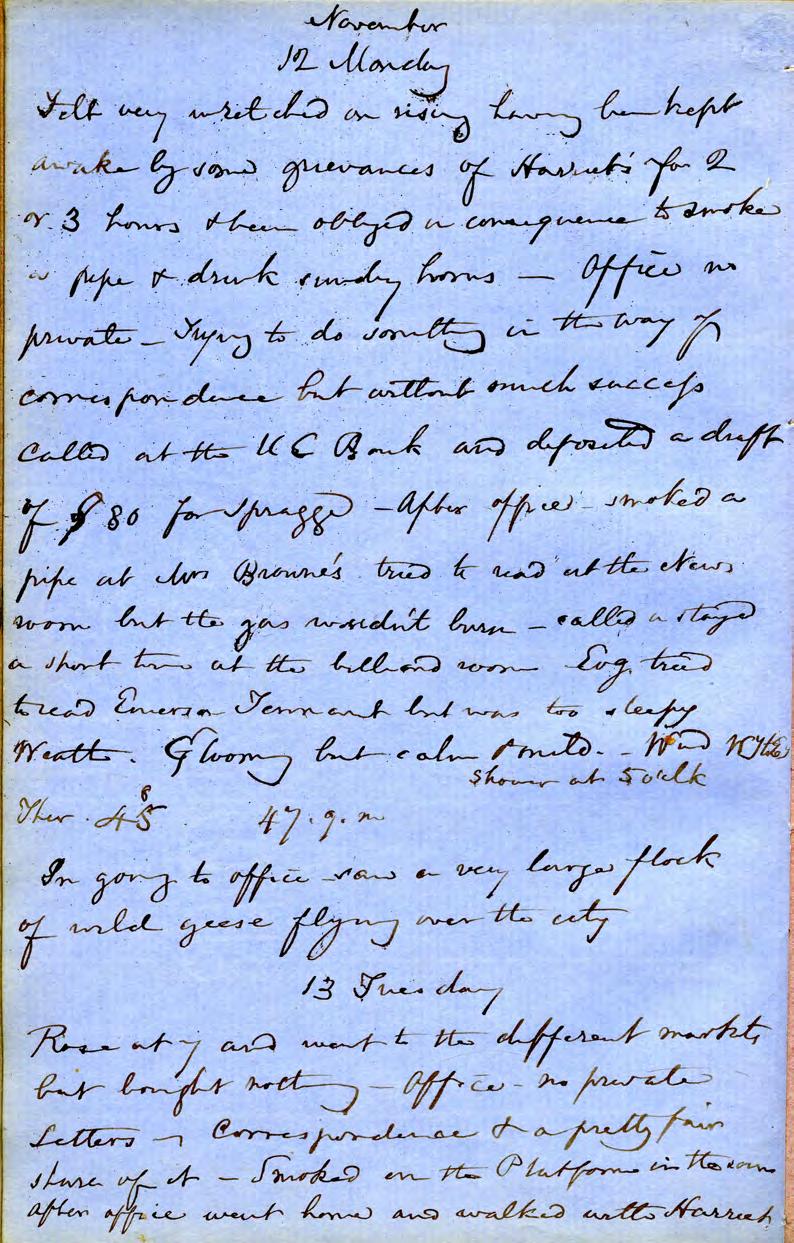 November
12 Monday
Felt very wretched on rising having been kept
awake by some grievances of Harriet's for 2
or 3 hours & been obliged in consequence to smoke
a pipe & drink sundry horns — Office no
private — Trying to do something in the way of
correspondence but without much success
Called at the U C Bank and deposited a draft
of $80 for Spragge — After office smoked a
pipe at Mrs Browne's tried to read at the News
room but the gas wouldn't burn — called & stayed
a short time at the billiard room Evg. tried
to read Emerson Tennant but was too sleepy
Weath. Gloomy but calm & mild. — Wind
Shower at 5 o'clk
Ther. 45 47. 9. m
In going to office saw a very large flock
of wild geese flying over the city
13 Tuesday
Rose at 7 and went to the different markets
but bought nothing — Office — no private
Letters — Correspondence & a pretty fair
share of it — Smoked on the Platform in the
After office went home and walked with Harriet